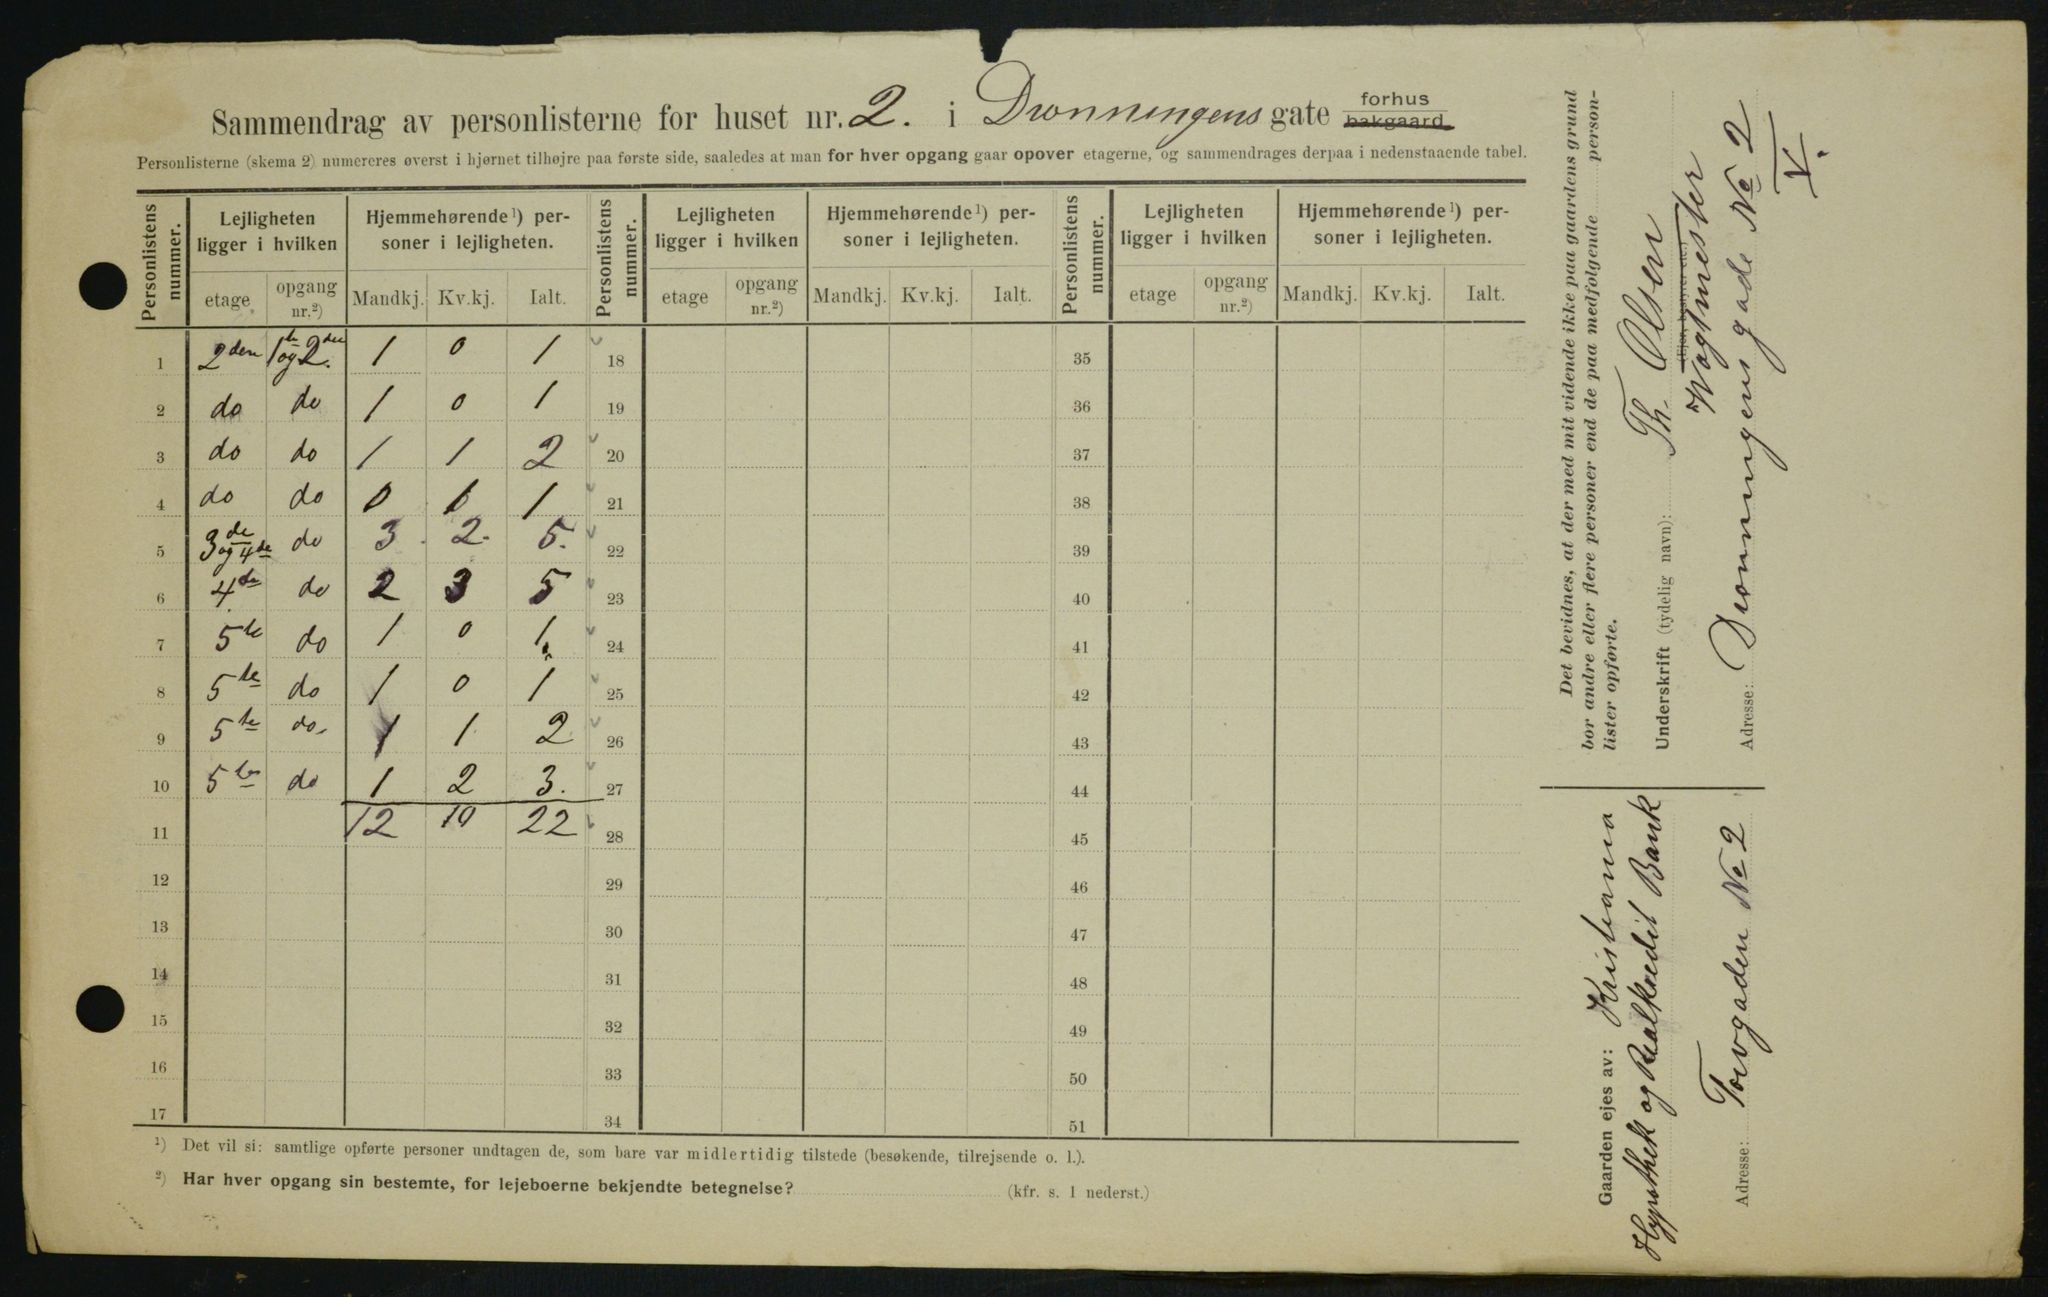 Sammendrag av personlisterne for huset nr. 2. i Dronningens gate forhus bakgaard
Personlisterne (skema 2) numereres øverst i hjørnet tilhøjre paa første side, saaledes at man for hver opgang gaar opover etagerne, og sammendrages derpaa i nedenstaaende tabel.
Personlistens nummer. Lejligheten ligger i hvilken Hjemmehørende ¹) personer i lejligheten. Personlistens nummer. Lejligheten ligger i hvilken Hjemmehørende ¹) personer i lejligheten. Personlistens nummer. Lejligheten ligger i hvilken Hjemmehørende ¹) personer i lejligheten.
etage opgang nr.²) Mandkj. Kv.kj. Ialt. etage opgang nr.²) Mandkj. Kv.kj. Ialt. etage opgang nr.²) Mandkj. Kv.kj. Ialt.
1 2den 1te og 2den 1 0 1 18 35
2 do do 1 0 1 19 36
3 do do 1 1 2 20 37
4 do do 0 1 1 21 38
5 3de og 4de do 3. 2. 5. 22 39
6 4de do 2 3 5 23 40
7 5te do 1 0 1. 24 41
8 5te do 1 0 1 25 42
9 5te do. 1 1 2 26 43
10 5te do 1 2 3. 27 44
11 12 10 22 28 45
12 29 46
13 30 47
14 31 48
15 32 49
16 33 50
17 34 51
¹) Det vil si: samtlige opførte personer undtagen de, som bare var midlertidig tilstede (besøkende, tilrejsende o. l.).
²) Har hver opgang sin bestemte, for lejeboerne bekjendte betegnelse? (kfr. s. 1 nederst.)
Det bevidnes, at der med mit vidende ikke paa gaardens grund
bor andre eller flere personer end de paa medfølgende personlister opførte.
Underskrift (tydelig navn): Th. Olsen
(Ejer, bestyrer etc.)
Vagtmester
Adresse: Dronningens gade No 2
V.
Gaarden ejes av: Kristiania
Hypothek og Realkredit Bank
Adresse: Torvgaden No 2